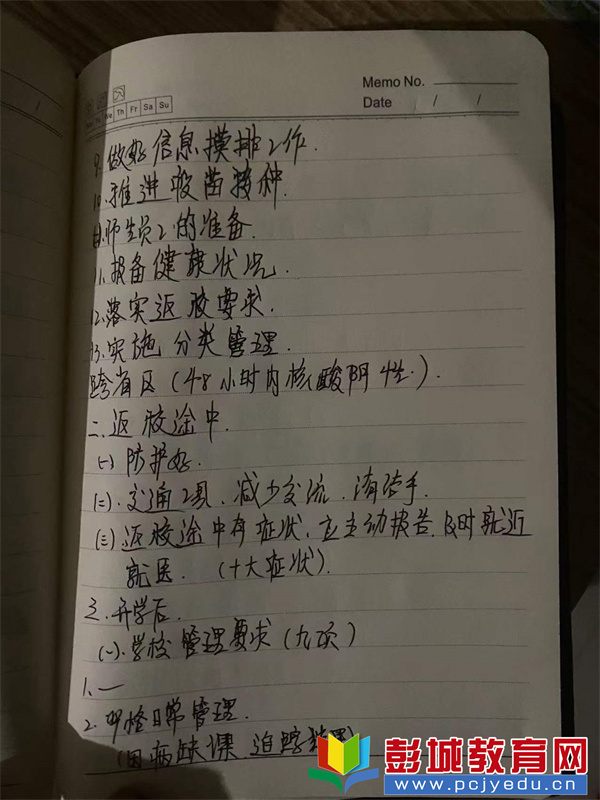 Memo No.
Date / /
Th Fr Sa Su
9.做好信息摸排工作.
10.推进疫苗接种.
师生员工的准备.
11.报备健康状况.
12.落实返校要求.
13.实施分类管理.
跨省区(48小时内核酸阴性).
二.返校途中.
(一)防护好.
(二).交通工具.减少交流.清洁手.
(三)返校途中有症状,应主动报告.及时就近
就医.(十大症状).
三.开学后.
(一).学校管理要求(九项)
1.一
2.严格日常管理.
(因病缺课.追踪
彭城教育网
www.pcjyedu.cn